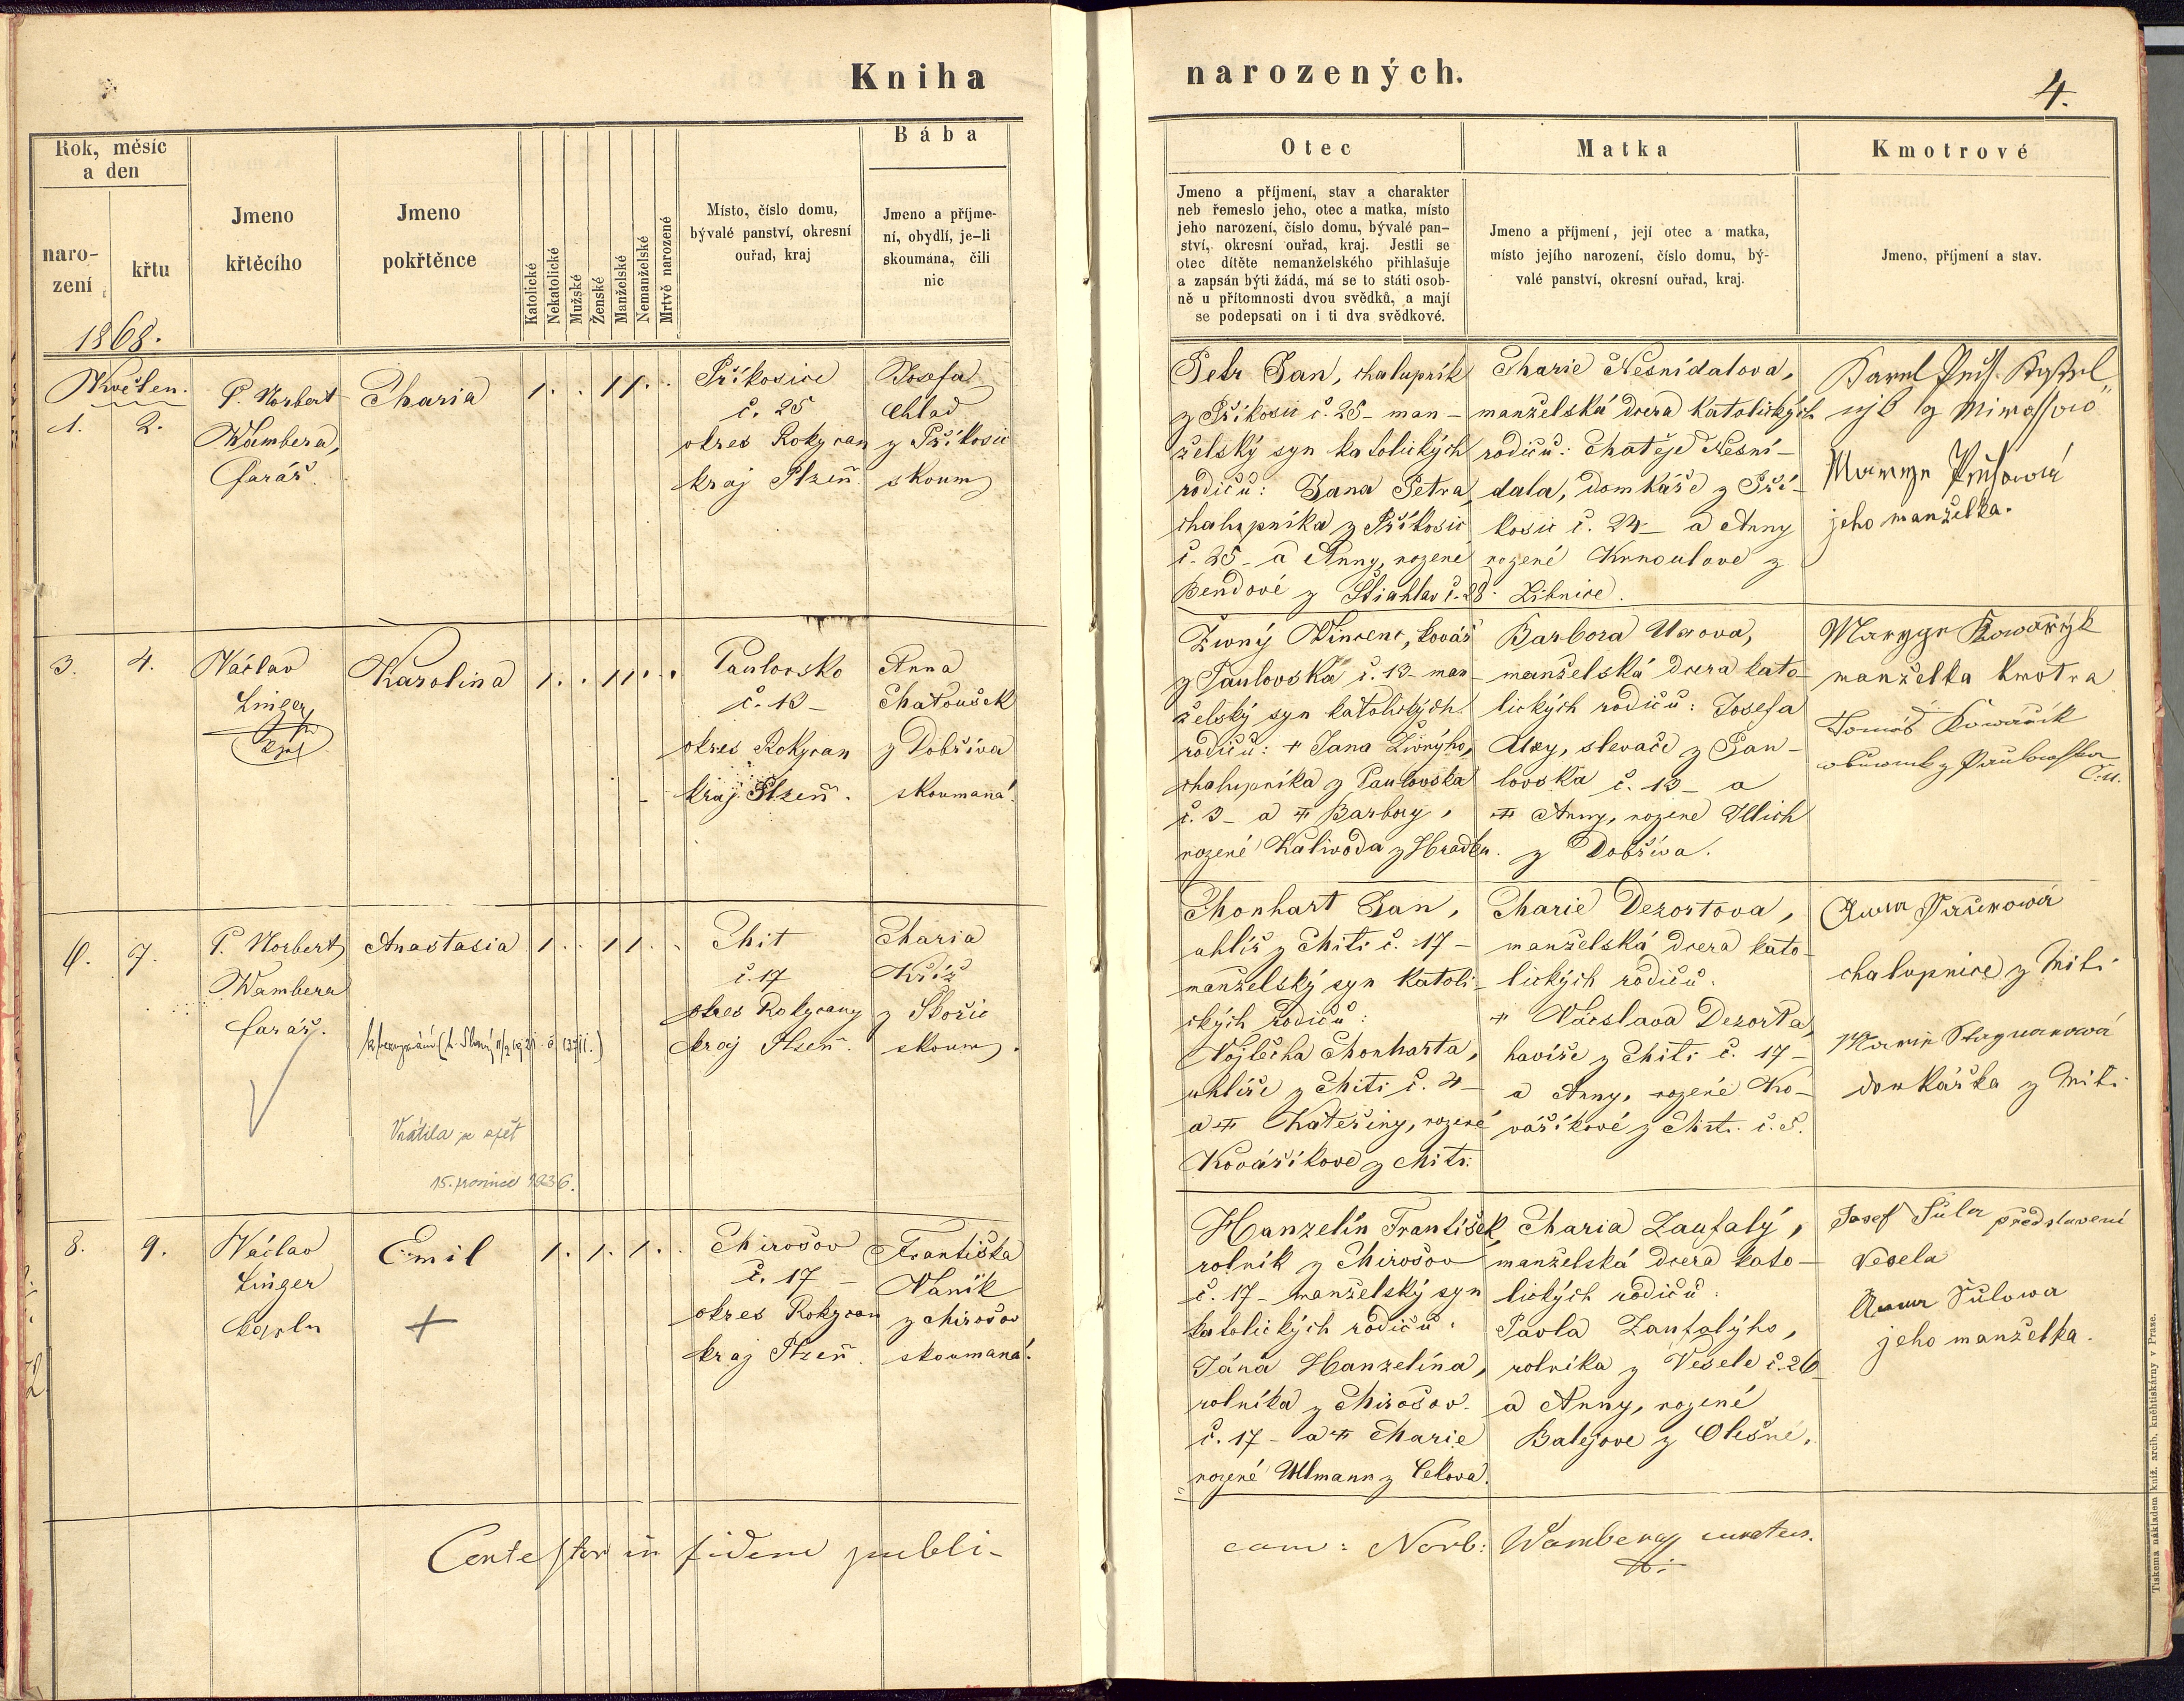 Kniha
narozených.
4.
Rok, měsíc
a den
naro-
zení
křtu
Jmeno
křtěcího
Jmeno
pokřtěnce
Katolické
Nekatolické
Mužské
Ženské
Manželské
Nemanželské
Mrtvě narozené
Místo, číslo domu,
bývalé panství, okresní
ouřad, kraj
Bába
Jmeno a příjme-
ní, obydlí, je-li
skoumána, čili
nic
Otec
Jmeno a příjmení, stav a charakter
neb řemeslo jeho, otec a matka, místo
jeho narození, číslo domu, bývalé pan-
ství, okresní ouřad, kraj. Jestli se
otec dítěte nemanželského přihlašuje
a zapsán býti žádá, má se to státi osob-
ně u přítomnosti dvou svědků, a mají
se podepsati on i ti dva svědkové.
Matka
Jmeno a příjmení, její otec a matka,
místo jejího narození, číslo domu, bý-
valé panství, okresní ouřad, kraj.
Kmotrové
Jmeno, příjmení a stav.
1868.
Květen.
1. 2.
P. Norbert
Wambera,
farář.
Maria
1. . 1 1 . .
Příkosice
č. 25
okres Rokycan
kraj Plzeň.
Josefa
Chlad
z Příkosic
skoum
Petr Jan, chalupník
z Příkosic č. 25 - man-
želský syn katolických
rodičů: Jana Petra,
chalupníka z Příkosic
č. 25 - a Anny, rozené
Bendové z Štiahlav č. 28.
Marie Nesnídalova,
manželská dcera katolických
rodičů: Matěje Nesní-
dala, domkáře z Pří-
kosic č. 24 - a Anny
rozené Krnoulove z
Libnice.
Karel
z
jeho manželka.
3. 4.
Václav
Linger
Karolina
1. . 1 1 . .
Paulovsko
č. 13 -
okres Rokycan
kraj Plzeň.
Anna
Matoušek
z Dobříva
skoumaná.
Živný Vincenc, kovář
z Paulovska č. 13 - man-
želský syn katolických
rodičů: + Jana Živnýho,
chalupníka z Paulovska
č. 3 - a Barbory,
rozené Kaliwoda z Hradku.
Barbora Uxova,
manželská dcera kato-
lických rodičů: Josefa
Uxy, slevače z Pau-
lovska č. 13 - a
Anny, rozene Illich
z Dobříva.
manželka kmotra
Tomáš Kowařík
z
6. 7.
P. Norbert
Wambera
farář.
Anastasia
1. . 1 1 . .
Vrátila se zpět
15. prosince 1936.
Mit
č. 17
okres Rokycany
kraj Plzeň.
Maria
Kříž
z Skořic
skoum.
Monhart Jan,
uhlíř z Miti č. 17 -
manželský syn katoli-
ckých rodičů:
Vojtěcha Monharta,
uhlíře z Miti č. 4 -
a Kateřiny, rozené
Kovaříkove z Miti.
Marie Dezortova,
manželská dcera kato-
lických rodičů.
+ Václava Dezorta,
havíře z Miti č. 17 -
a Anny, rozené Ko-
vaříkové z Miti č. 5.
Anna
chalupnice z Miti
domkářka z Miti
8. 9.
Václav
Linger
kaplan
Emil
+
1. 1. 1. .
Mirošov
č. 17 -
okres Rokycan
kraj Plzeň.
Františka
Vaník
z Mirošov
skoumaná.
Hanzelín František,
rolník z Mirošov
č. 17 - manželský syn
katolických rodičů:
Jána Hanzelína,
rolníka z Mirošov.
č. 17 - a Marie
rozené Ullmann z Cekova.
Maria Zaufalý,
manželská dcera kato-
lických rodičů:
Pavla Zaufalýho,
rolníka z Vesele č. 26
a Anny, rozené
Balejove z Olešné.
Josef Šula představení
Vesela
Anna Šulowa
jeho manželka.
Contestor in fidem publi-
cam: Norb: Wambera curatus.
Tiskem a nákladem kniž. arcib. kněhtiskárny v Praze.